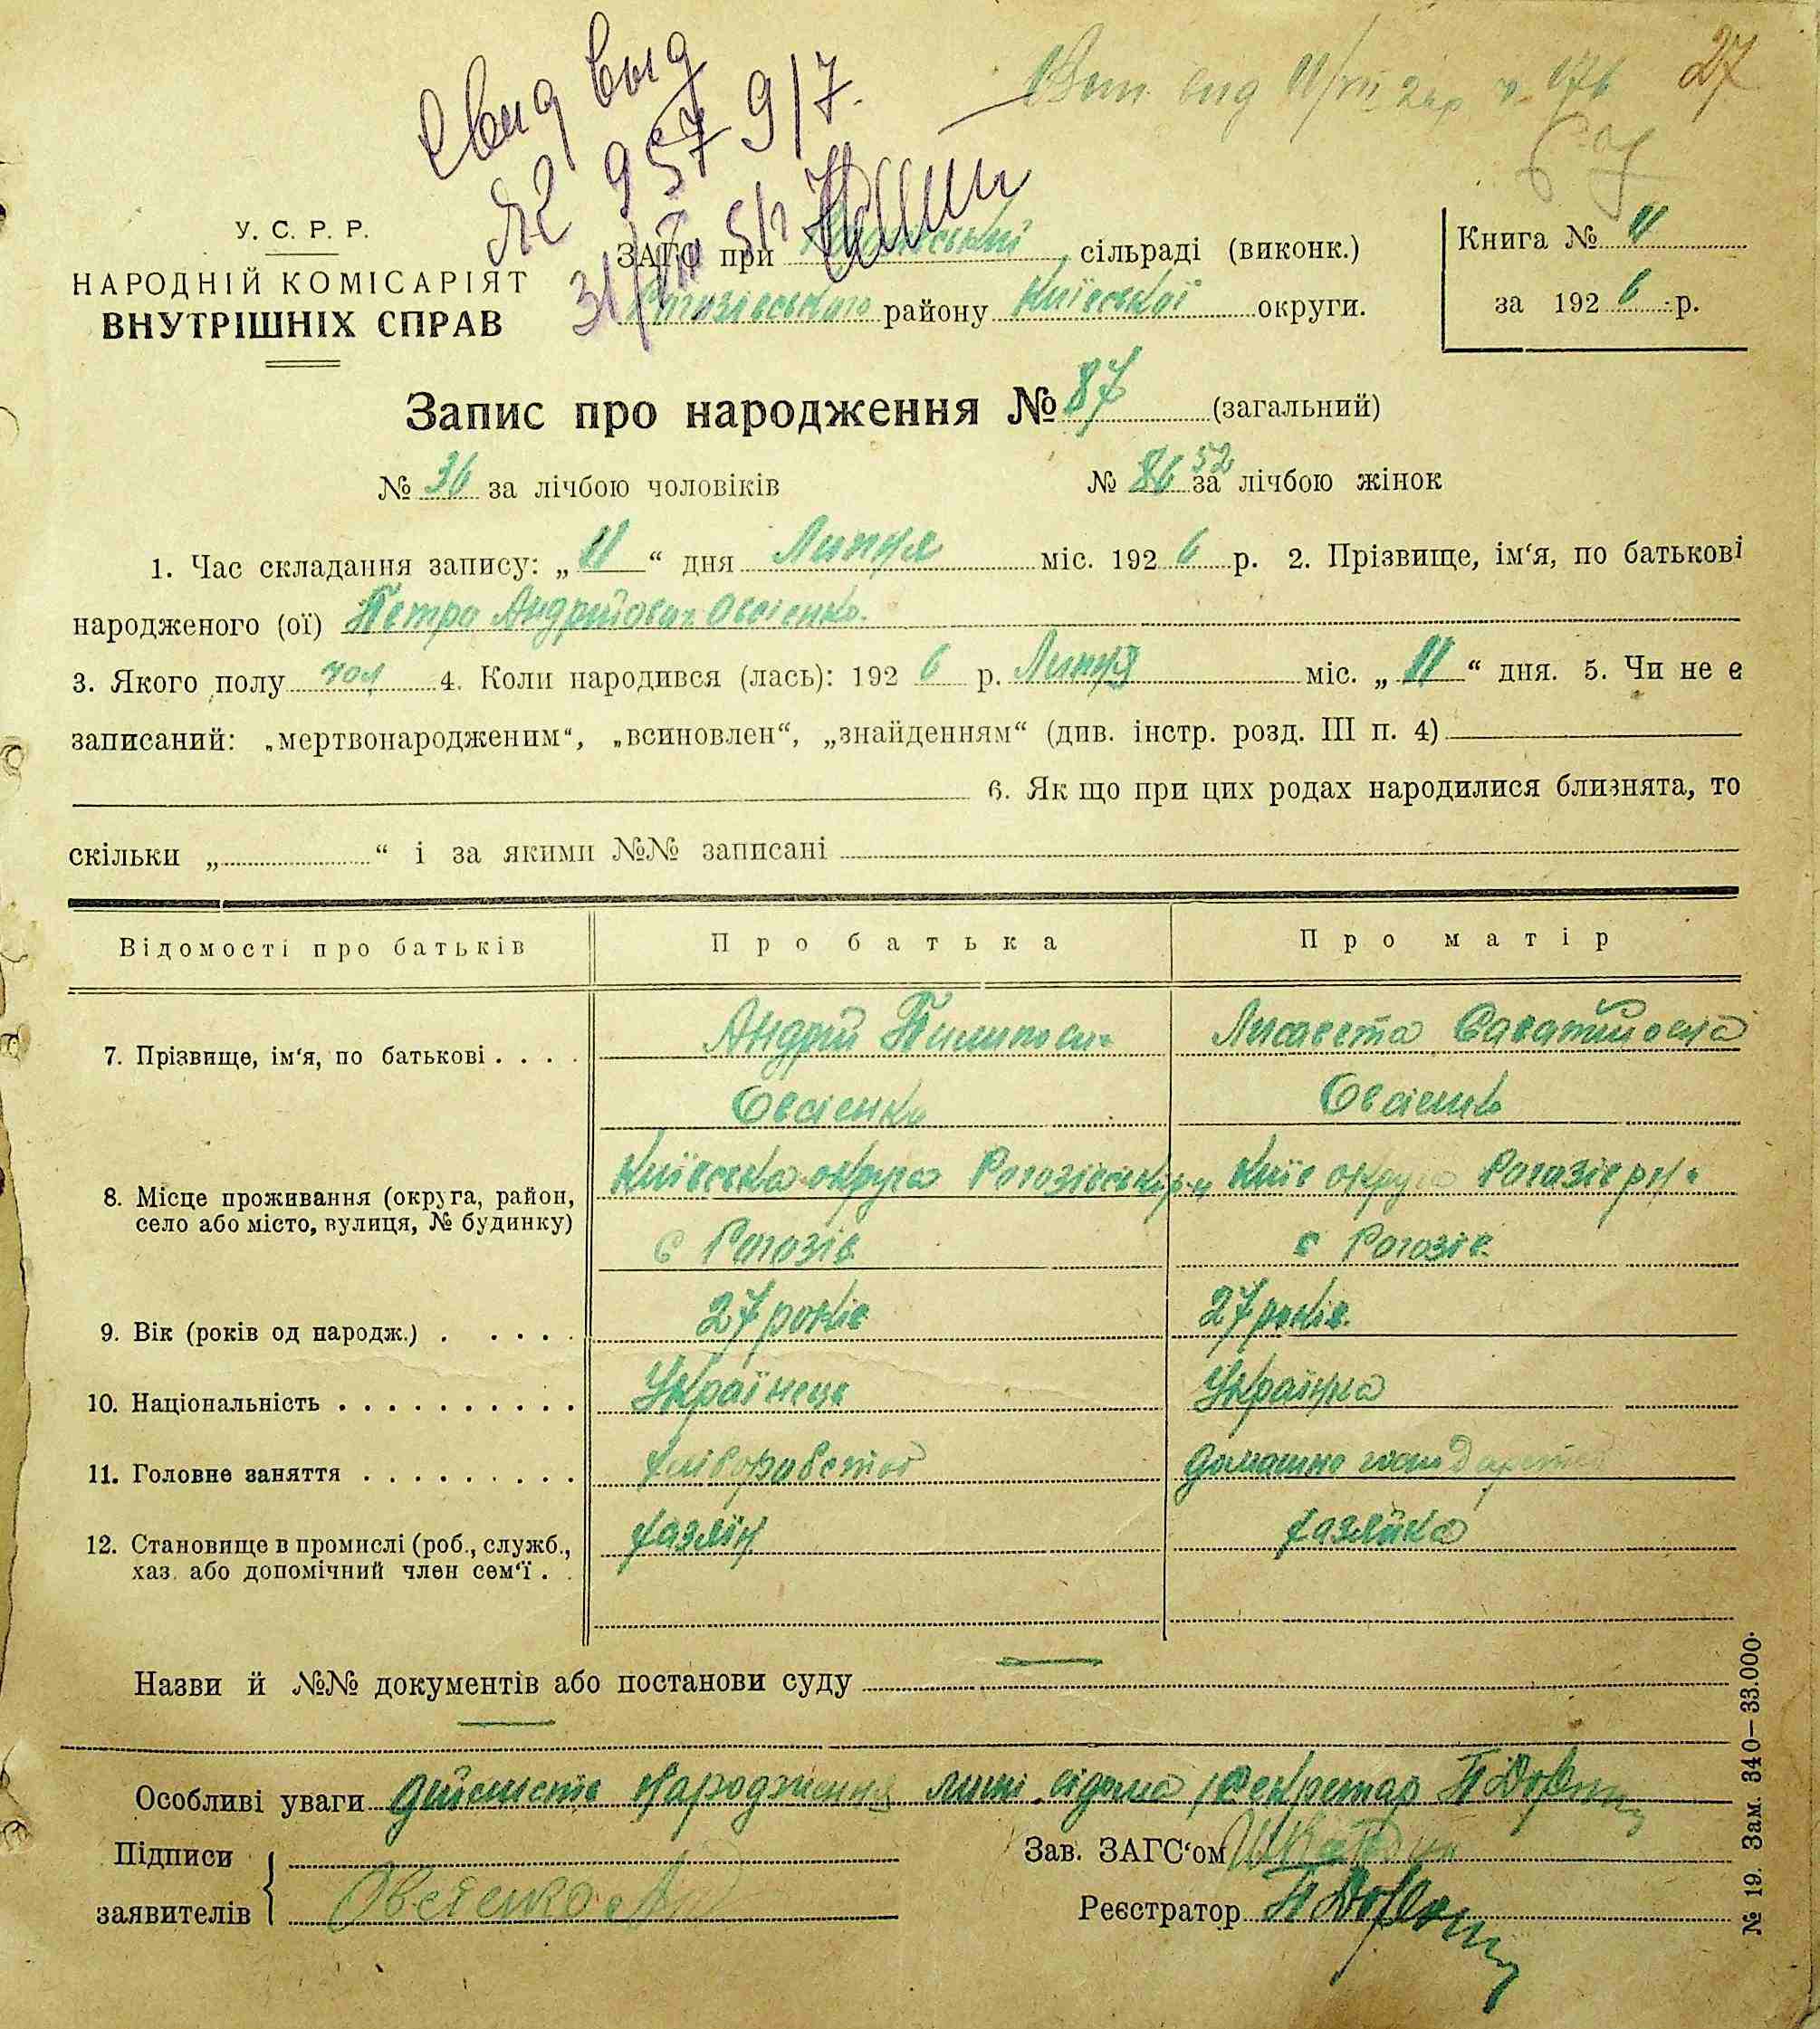 27
Свид выд
№ 957 9/7.
У. С. Р. Р.
НАРОДНІЙ КОМІСАРІЯТ
ВНУТРІШНІХ СПРАВ
ЗАГС при сільраді (виконк.)
Рогозівського району Київської округи.
Книга № 11
за 1926 р.
Запис про народження № 87 (загальний)
№ 36 за лічбою чоловіків № 86 52 за лічбою жінок
1. Час складання запису: „11“ дня Липня міс. 1926 р. 2. Прізвище, ім‘я, по батькові
народженого (ої) Петро Андрійович Овсієнко.
3. Якого полу чол 4. Коли народився (лась): 1926 р. Липня міс. „11“ дня. 5. Чи не є
записаний: „мертвонародженим“, „всиновлен“, „знайденням“ (див. інстр. розд. III п. 4)
6. Як що при цих родах народилися близнята, то
скільки „ “ і за якими №№ записані
Відомості про батьків Про батька Про матір
7. Прізвище, ім‘я, по батькові . . . . Андрій Пилипов. Лисавета Саватійовна
Овсієнко Овсієнко
8. Місце проживання (округа, район,
село або місто, вулиця, № будинку)
Київська округа Рогозівськ. р-н Київ округа Рогозів р-н
с Рогозів с Рогозів.
9. Вік (років од народж.) . . . . . 27 років 27 років.
10. Національність . . . . . . . . . . Українець Українка
11. Головне заняття . . . . . . . . . хліборобство домашнє господарство
12. Становище в промислі (роб., служб.,
хаз. або допомічний член сем‘ї . .
хазяїн хазяйка
Назви й №№ документів або постанови суду
Особливі уваги дійсність народження мині відома секретар
Підписи
заявителів
Овсієнко
Зав. ЗАГС‘ом
Реєстратор
№ 19. Зам. 340—33.000.